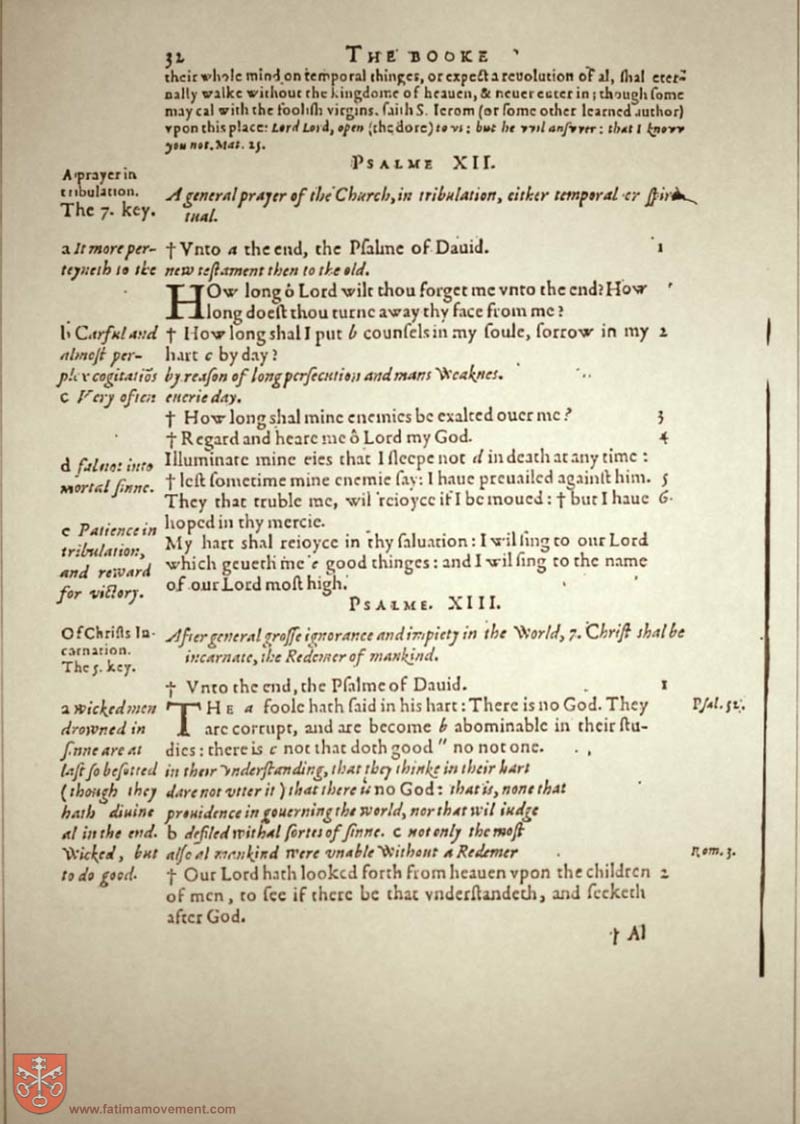 32 THE BOOKE
their whole mind on temporal thinges, or expect a reuolution of al, shal eter-
nally walke without the kingdome of heauen, & neuer enter in; though some
may cal with the foolish virgins. saith S. Ierom (or some other learned author)
vpon this place: Lord Lord, open (the dore) to vs: but he vvil ansvver: that I knovv
you not. Mat. 25.
PSALME XII.
A prayer in
tribulation.
The 7. key.
A general prayer of the Church, in tribulation, either temporal or spiri-
tual.
a It more per-
teyneth to the
† Vnto a the end, the Psalme of Dauid. 1
new testament then to the old.
HOw long ô Lord wilt thou forget me vnto the end? How
long doest thou turne away thy face from me?
b Carful and
almost per-
plex cogitatiõs
c Very often
† How long shal I put b counsels in my soule, sorrow in my 2
hart c by day?
by reason of long persecution and mans Weaknes.
euerie day.
† How long shal mine enemies be exalted ouer me? 3
† Regard and heare me ô Lord my God. 4
d fal not into
mortal sinne.
Illuminate mine eies that I sleepe not d in death at any time:
† lest sometime mine enemie say: I haue preuailed against him. 5
They that truble me, wil reioyce if I be moued: † but I haue 6.
hoped in thy mercie.
e Patience in
tribulation,
and reward
for victory.
My hart shal reioyce in thy saluation: I wil sing to our Lord
which geueth me e good thinges: and I wil sing to the name
of our Lord most high.
PSALME. XIII.
Of Christs In-
carnation.
The 5. key.
After general grosse ignorance and impiety in the World, 7. Christ shal be
incarnate, the Redemer of mankind.
† Vnto the end, the Psalme of Dauid. 1
a wicked men
drowned in
sinne are at
last so besotted
(though they
hath diuine
al in the end.
Wicked, but
to do good.
THE a foole hath said in his hart: There is no God. They Psal. 52.
are corrupt, and are become b abominable in their stu-
dies: there is c not that doth good " no not one.
in their vnderstanding, that they thinke in their hart
dare not vtter it) that there is no God: that is, none that
prouidence in gouerning the world, nor that wil iudge
b defiled withal sortes of sinne. c not only the most
also al mankind were vnable Without a Redemer Rom. 3.
† Our Lord hath looked forth from heauen vpon the children 2
of men, to see if there be that vnderstandeth, and seeketh
after God.
† Al
www.fatimamovement.com